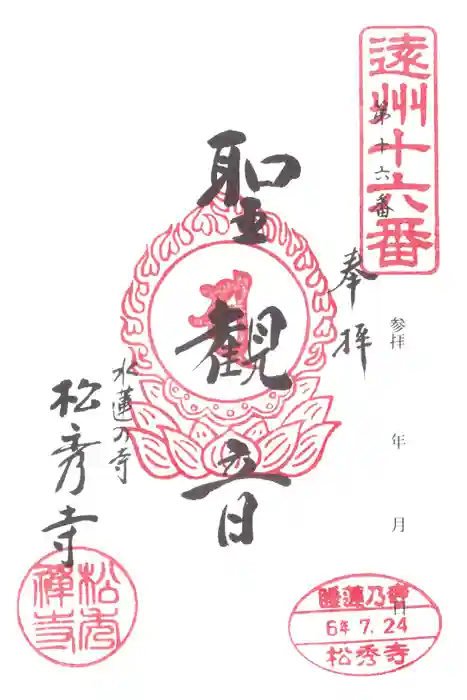 遠州十六番
第十六番
奉拝
参拝 年 月 日
聖観音
水蓮乃寺
松秀寺
睡蓮乃寺
6年 7.24
松秀寺
松秀禅寺